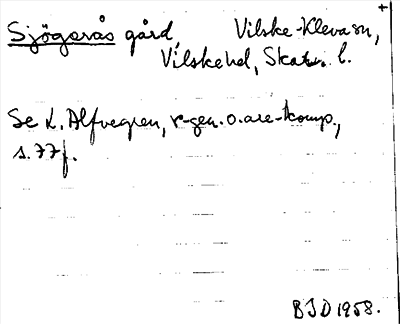 Sjögerås gård, Vilske-Kleva sn,
Vilske hd, Skarab. l.
Se L. Alfvegren, r-gen. o. are-komp.,
s. 77 f.
BJD 1958.